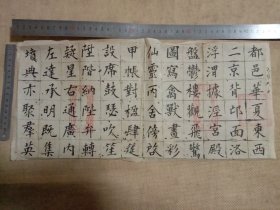 都邑華夏東西
二京背邙面洛
浮渭據涇宮殿
盤鬱樓觀飛驚
圖寫禽獸畫彩
仙靈丙舍傍啟
甲帳對楹肆筵
設席鼓瑟吹笙
陞階納陛弁轉
疑星右通廣內
左達承明既集
墳典亦聚羣英